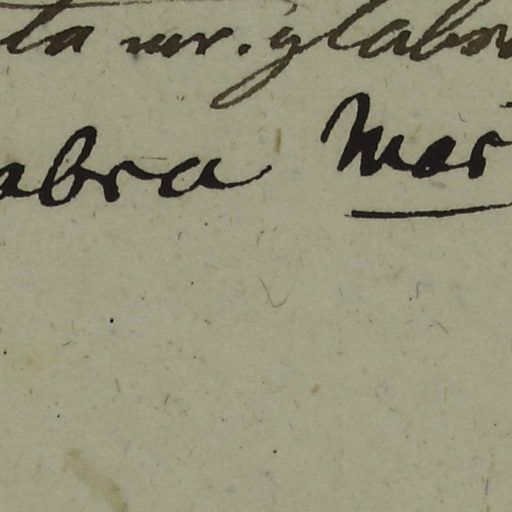 ta var. glabr
abra Mor